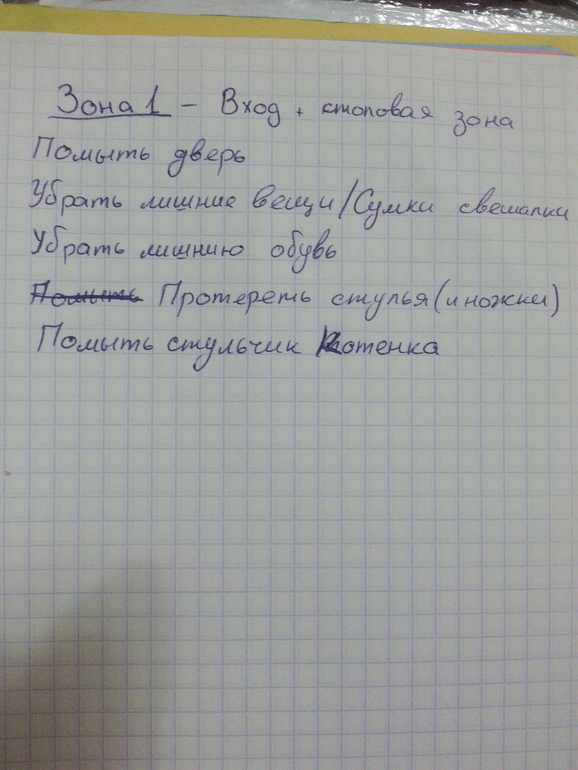 Зона 1 - Вход + столовая зона
Помыть дверь
Убрать лишние вещи/Сумки свешалки
Убрать лишнию обувь
Помыть Протереть стулья (и ножки)
Помыть стульчик Котенка